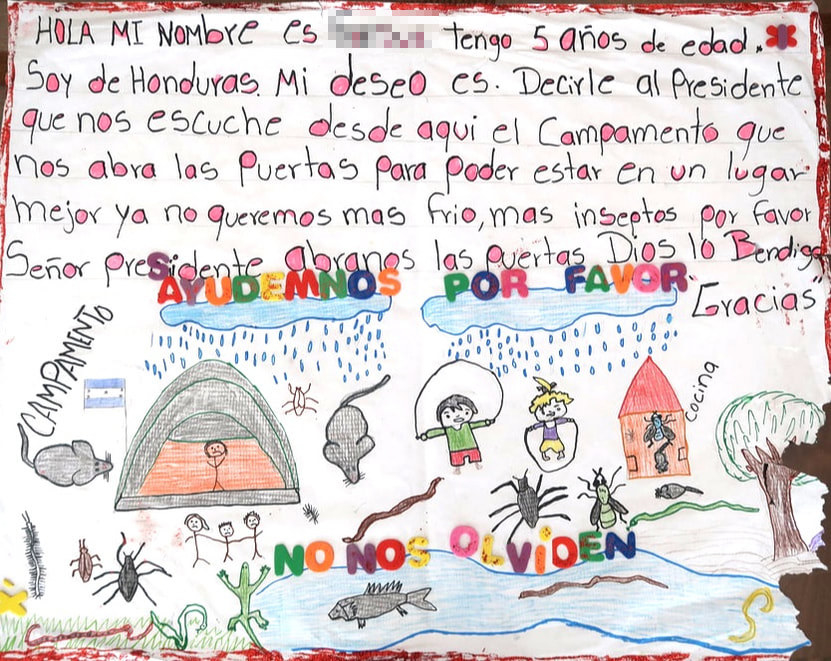 HOLA MI NOMbre es tengo 5 años de edad.
Soy de Honduras. Mi deseo es. Decirle al Presidente
que nos escuche desde aqui el Campamento que
nos abra las Puertas para Poder estar en un lugar
mejor ya no queremos mas frio, mas inseptos por Favor
Señor presidente abranos las puertas Dios lo Bendiga
AYUDEMNOS POR FAVOR
Gracias"
CAMPAMENTO
cocina
NO NOS OLVIDEN